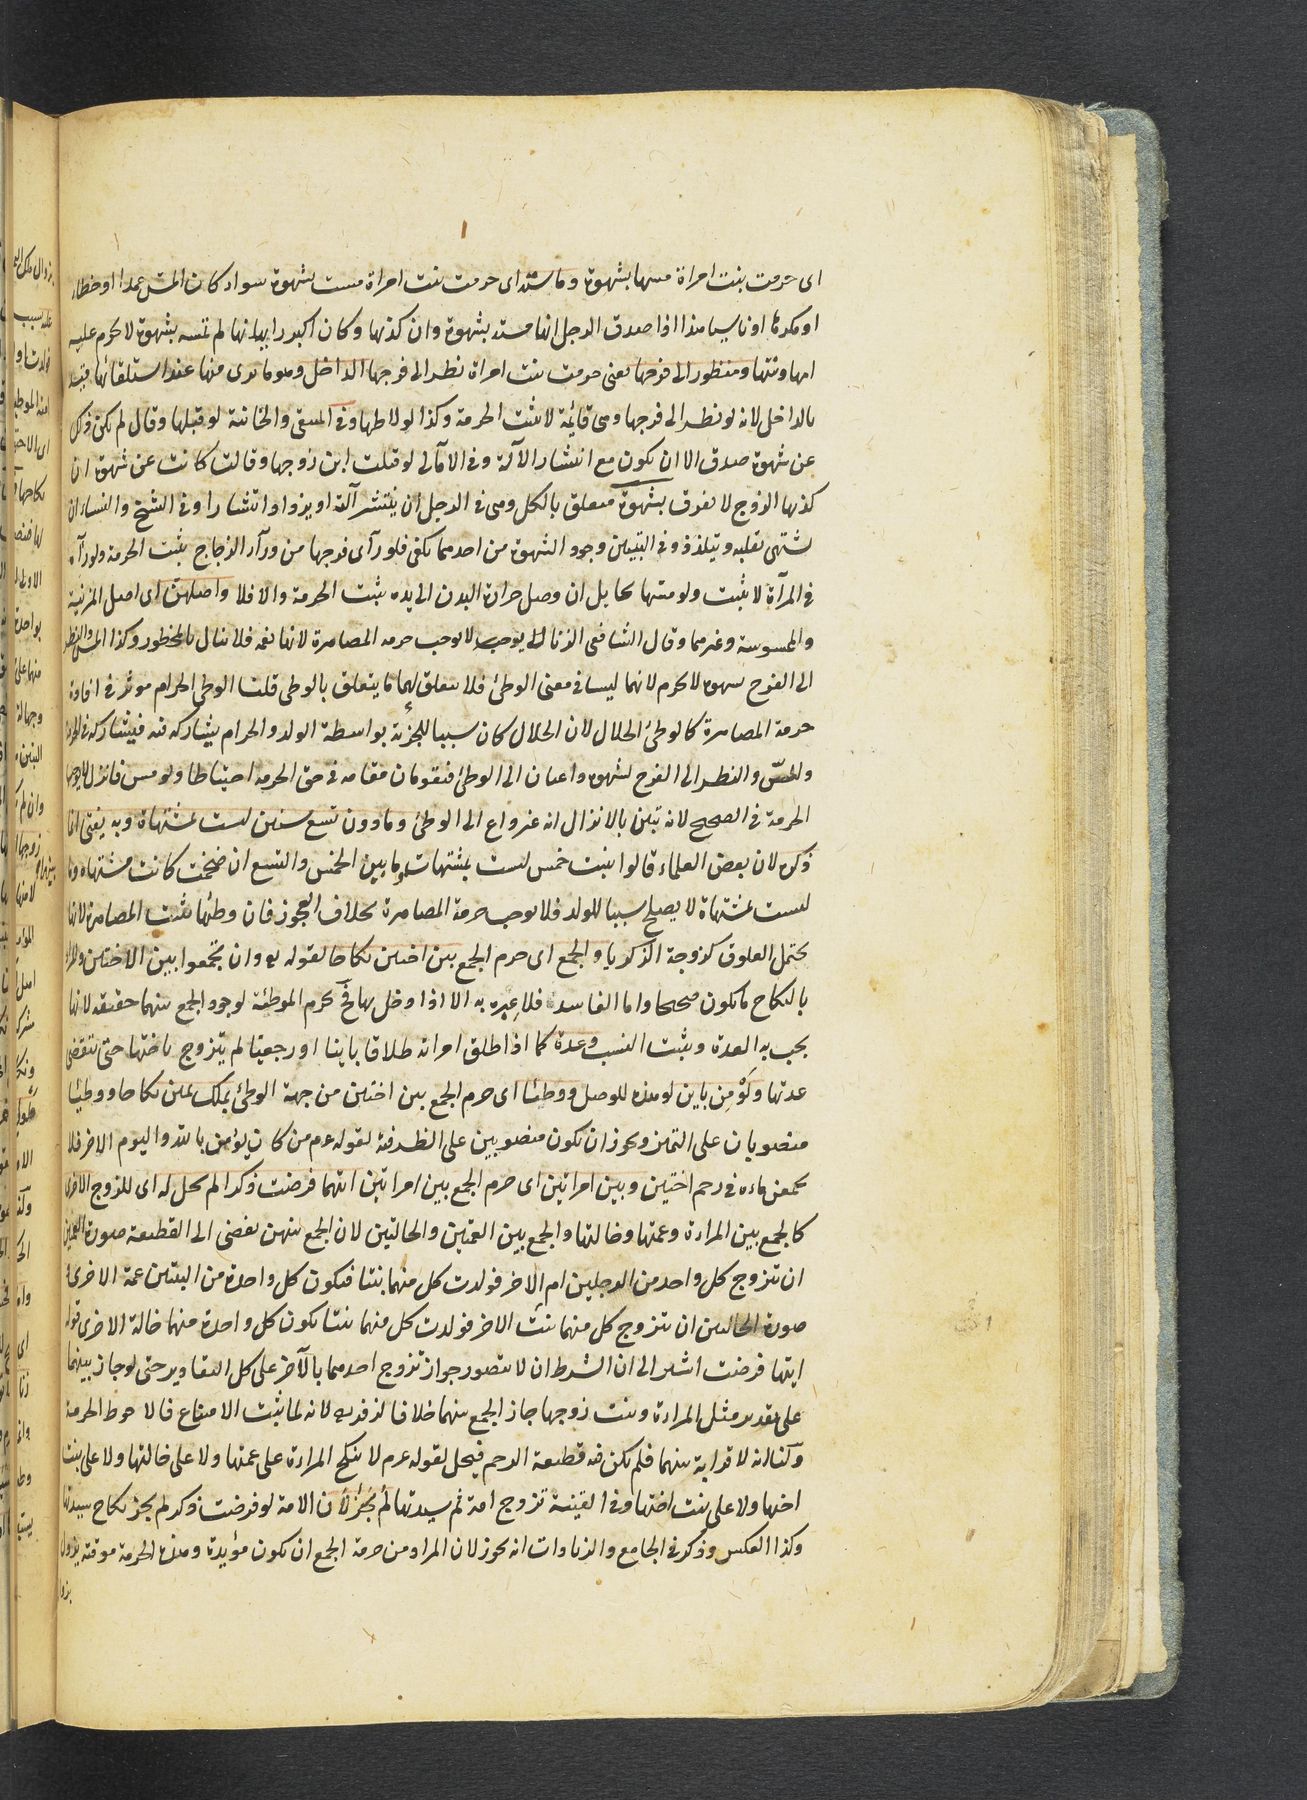 اى حرمت بنت امراة مسها بشهوة وماسته اى حرمت بنت امراة مست بشهوة سواء كان المس عمدا او خطاء
او مكرها او ناسيا هذا اذا صدق الرجل انها مسته بشهوة وان كذبها وكان اكبر رايه انها لم تمسه بشهوة لا يحرم عليه
امها وبنتها ومنظور الى فرجها يعنى حرمت بنت امراة نظر الى فرجها الداخل وهو ما يرى منها عند استلقائها قيد
بالداخل لانه لو نظر الى فرجها وهى قائمة لا تثبت الحرمة وكذا لو لاطها وفى المنتقى والخانية لو قبلها وقال لم يكن ذلك
عن شهوة صدق الا ان يكون مع انتشار الآلة وفى الامالى لو قبلت ابن زوجها وقالت كانت عن شهوة ان
كذبها الزوج لا يفرق بشهوة متعلق بالكل وهى فى الرجل ان ينتشر آلته او يزداد انتشارا وفى الشيخ والنساء ان
يشتهى بقلبه ويتلذذ وفى التبيين وجود الشهوة من احدهما يكفى فلو رآى فرجها من ورآء الزجاج يثبت الحرمة ولو رآه
فى المرآة لا يثبت ولو مسها بحايل ان وصل حرارة البدن الى يده يثبت الحرمة والا فلا واصلهن اى اصل المزنية
والممسوسة وغيرهما وقال الشافعى الزنا لا يوجب حرمة المصاهرة لانها نعمة فلا تنال بالمحظور وكذا المس والنظر
الى الفرج بشهوة لا يحرم لانهما ليسا فى معنى الوطئ فلا يتعلق بهما ما يتعلق بالوطى قلنا الوطى الحرام مؤثر فى افادة
حرمة المصاهرة كالوطئ الحلال لان الحلال كان سببا للجزئية بواسطة الولد والحرام يشاركه فيه فيشاركه فى الحرمة
والمس والنظر الى الفرج بشهوة داعيان الى الوطئ فيقومان مقامه فى حق الحرمة احتياطا ولو مس فانزل لا يوجب
الحرمة فى الصحيح لانه تبين بالانزال انه غير داع الى الوطئ وما دون تسع سنين ليست بمشتهاة وبه يفتى انما
ذكره لان بعض العلماء قالوا بنت خمس ليست بمشتهات وما بين الخمس والتسع ان ضخمت كانت مشتهاة وما
ليست بمشتهاة لا يصلح سببا للولد فلا يوجب حرمة المصاهرة بخلاف العجوز فان وطئها يثبت المصاهرة لانها
يحتمل العلوق كزوجة الذكريا والجمع اى حرم الجمع بين اختين نكاحا لقوله تع وان تجمعوا بين الاختين والمراد
بالنكاح ما يكون صحيحا واما الفاسد فلا عبرة به الا اذا دخل بها فح يحرم الموطئة لوجود الجمع بينهما حقيقة لانها
يجب به العدة ويثبت النسب وعدة كما اذا طلق امراته طلاقا باينا او رجعيا لم يتزوج باختها حتى تنقضى
عدتها ولو من باين لو هذه للوصل ووطئا اى حرم الجمع بين اختين من جهة الوطئ بملك يمين نكاحا ووطئا
منصوبان على التميز ويجوز ان تكون منصوبين على الظرفية لقوله عم من كان يؤمن بالله واليوم الاخر فلا
يجمعن ماءه فى رحم اختين وبين امراتين اى حرم الجمع بين امراتين ايتهما فرضت ذكرا لم يحل له اى للزوج الاخرى
كالجمع بين المراءة وعمتها وخالتها والجمع بين العمتين والخالتين لان الجمع بينهن يفضى الى القطيعة صورة العمتين
ان تتزوج كل واحد من الرجلين ام الاخر فولدت كل منهما بنتا فيكون كل واحدة من البنتين عمة الاخرى و
صورة الخالتين ان يتزوج كل منهما بنت الاخر فولدت كل منهما بنتا يكون كل واحدة منهما خالة الاخرى قوله
ايتها فرضت اشير الى ان الشرط ان لا يتصور جواز تزوج احدهما بالآخر على كل التقادير حتى لو جاز بينهما
على تقدير مثل المراءة وبنت زوجها جاز الجمع بينهما خلافا لزفر له لانه لما يثبت الامتناع فالاحوط الحرمة
ولنا انه لا قرابة بينهما فلم يكن فيه قطيعة الرحم فيحل لقوله عم لا ينكح المراءة على عمتها ولا على خالتها ولا على بنت
اخيها ولا على بنت اختها وفى القنية تزوج امة ثم سيدتها لم يجز لان الامة لو فرضت ذكر لم يجز نكاح سيدتها
وكذا العكس وذكر فى الجامع والزيادات انه يجوز لان المراد من حرمة الجمع ان يكون مؤبدة وهذه الحرمة موقتة يزول
بزو